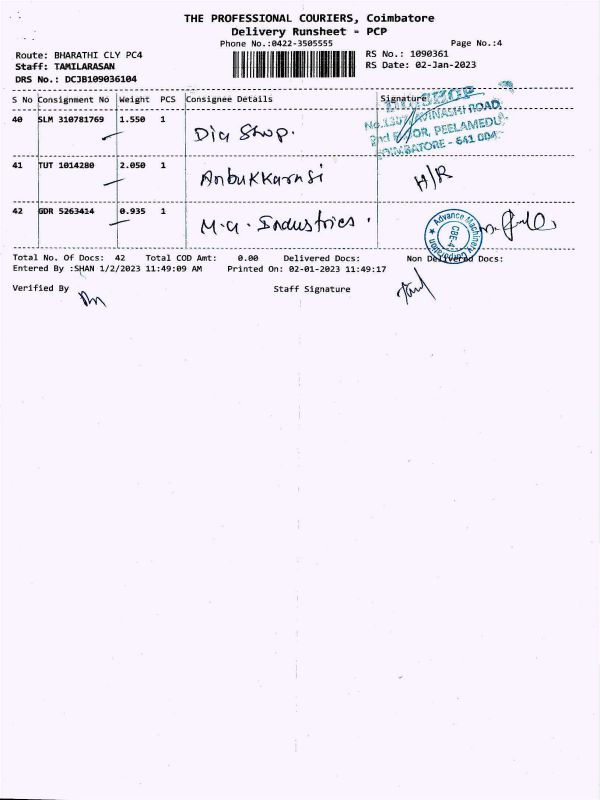 THE PROFESSIONAL COURIERS, Coimbatore
Delivery Runsheet - PCP
Phone No.:0422-3505555 Page No.:4
Route: BHARATHI CLY PC4 RS No.: 1090361
Staff: TAMILARASAN RS Date: 02-Jan-2023
DRS No.: DCJB109036104
S No Consignment No Weight PCS Consignee Details Signature
40 SLM 310781769 1.550 1 Dia Shop.
DIA SHOP
No.1307, AVINASHI ROAD,
2nd FLOOR, PEELAMEDU,
COIMBATORE - 641 004.
41 TUT 1014280 2.050 1 Anbukkarasi H/R
42 GDR 5263414 0.935 1 M.G. Industries.
Advance Machinery Corporation
CBE-4
Total No. Of Docs: 42 Total COD Amt: 0.00 Delivered Docs: Non Delivered Docs:
Entered By :SHAN 1/2/2023 11:49:09 AM Printed On: 02-01-2023 11:49:17
Verified By Staff Signature